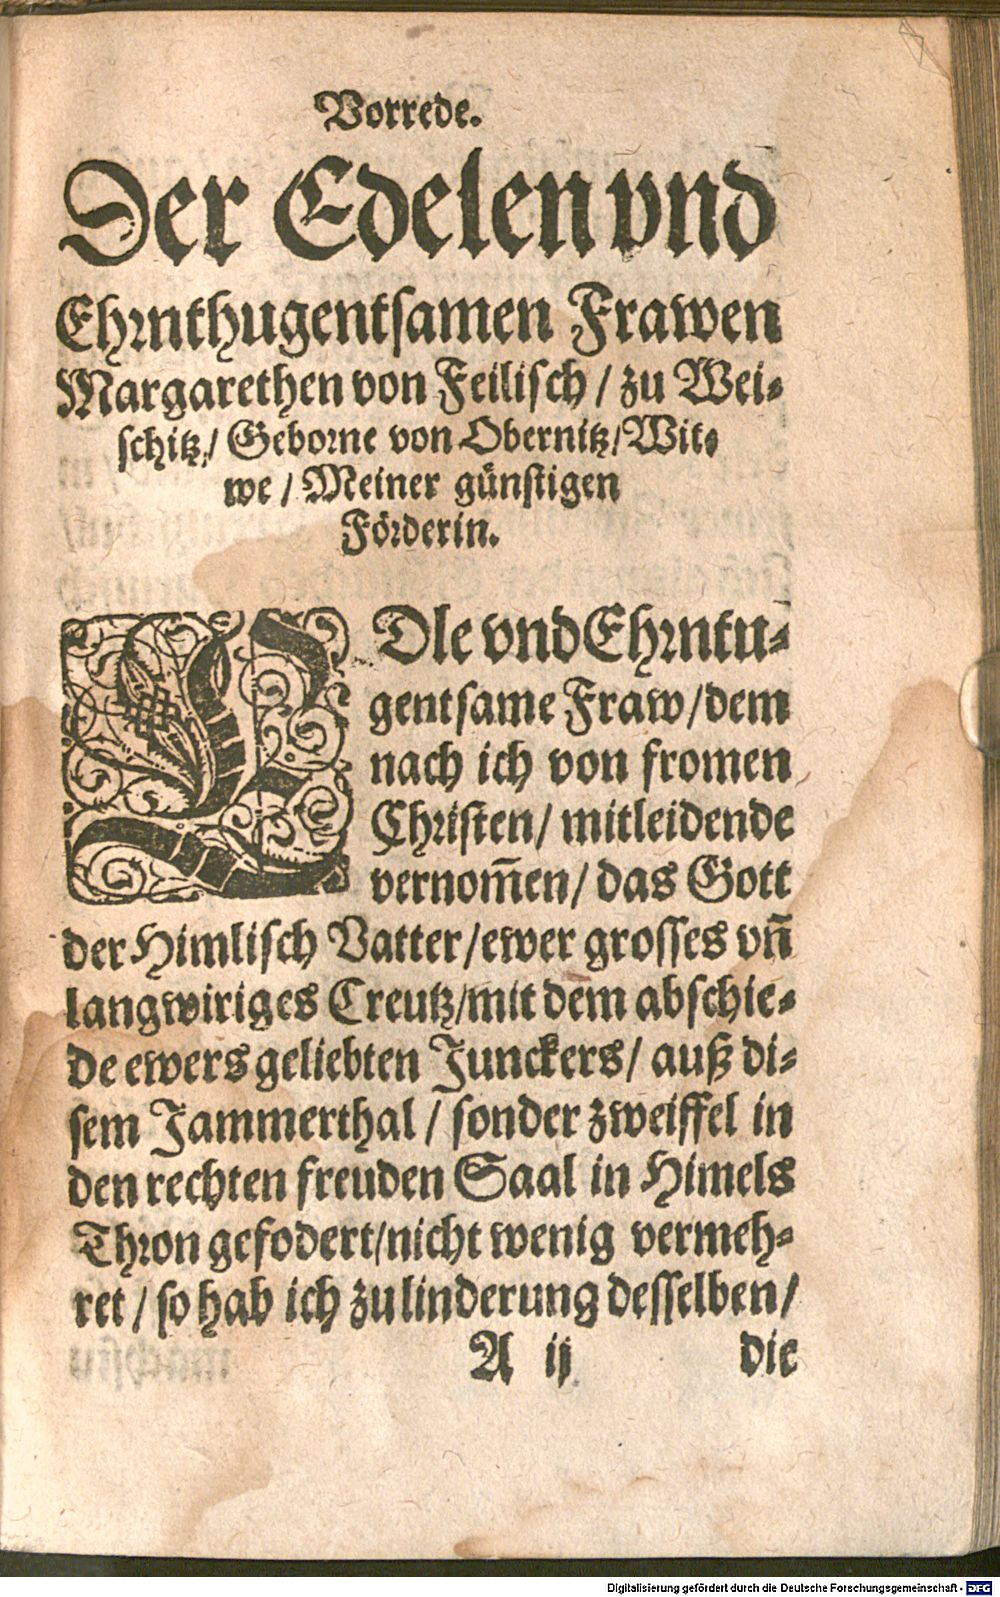 Vorrede.
Der Edelen vnd
Ehrnthugentsamen Frawen
Margarethen von Feilisch / zu Wei⸗
schitz / Geborne von Obernitz / Wit⸗
we / Meiner günstigen
Förderin.
EDle vnd Ehrntu⸗
gentsame Fraw / dem
nach ich von fromen
Christen / mitleidende
vernom̄en / das Gott
der Himlisch Vatter / ewer grosses vn̄
langwiriges Creutz / mit dem abschie⸗
de ewers geliebten Junckers / auß di⸗
sem Jammerthal / sonder zweiffel in
den rechten freuden Saal in Himels
Thron gefodert / nicht wenig vermeh⸗
ret / so hab ich zu linderung desselben /
A ij die
Digitalisierung gefördert durch die Deutsche Forschungsgemeinschaft - DFG